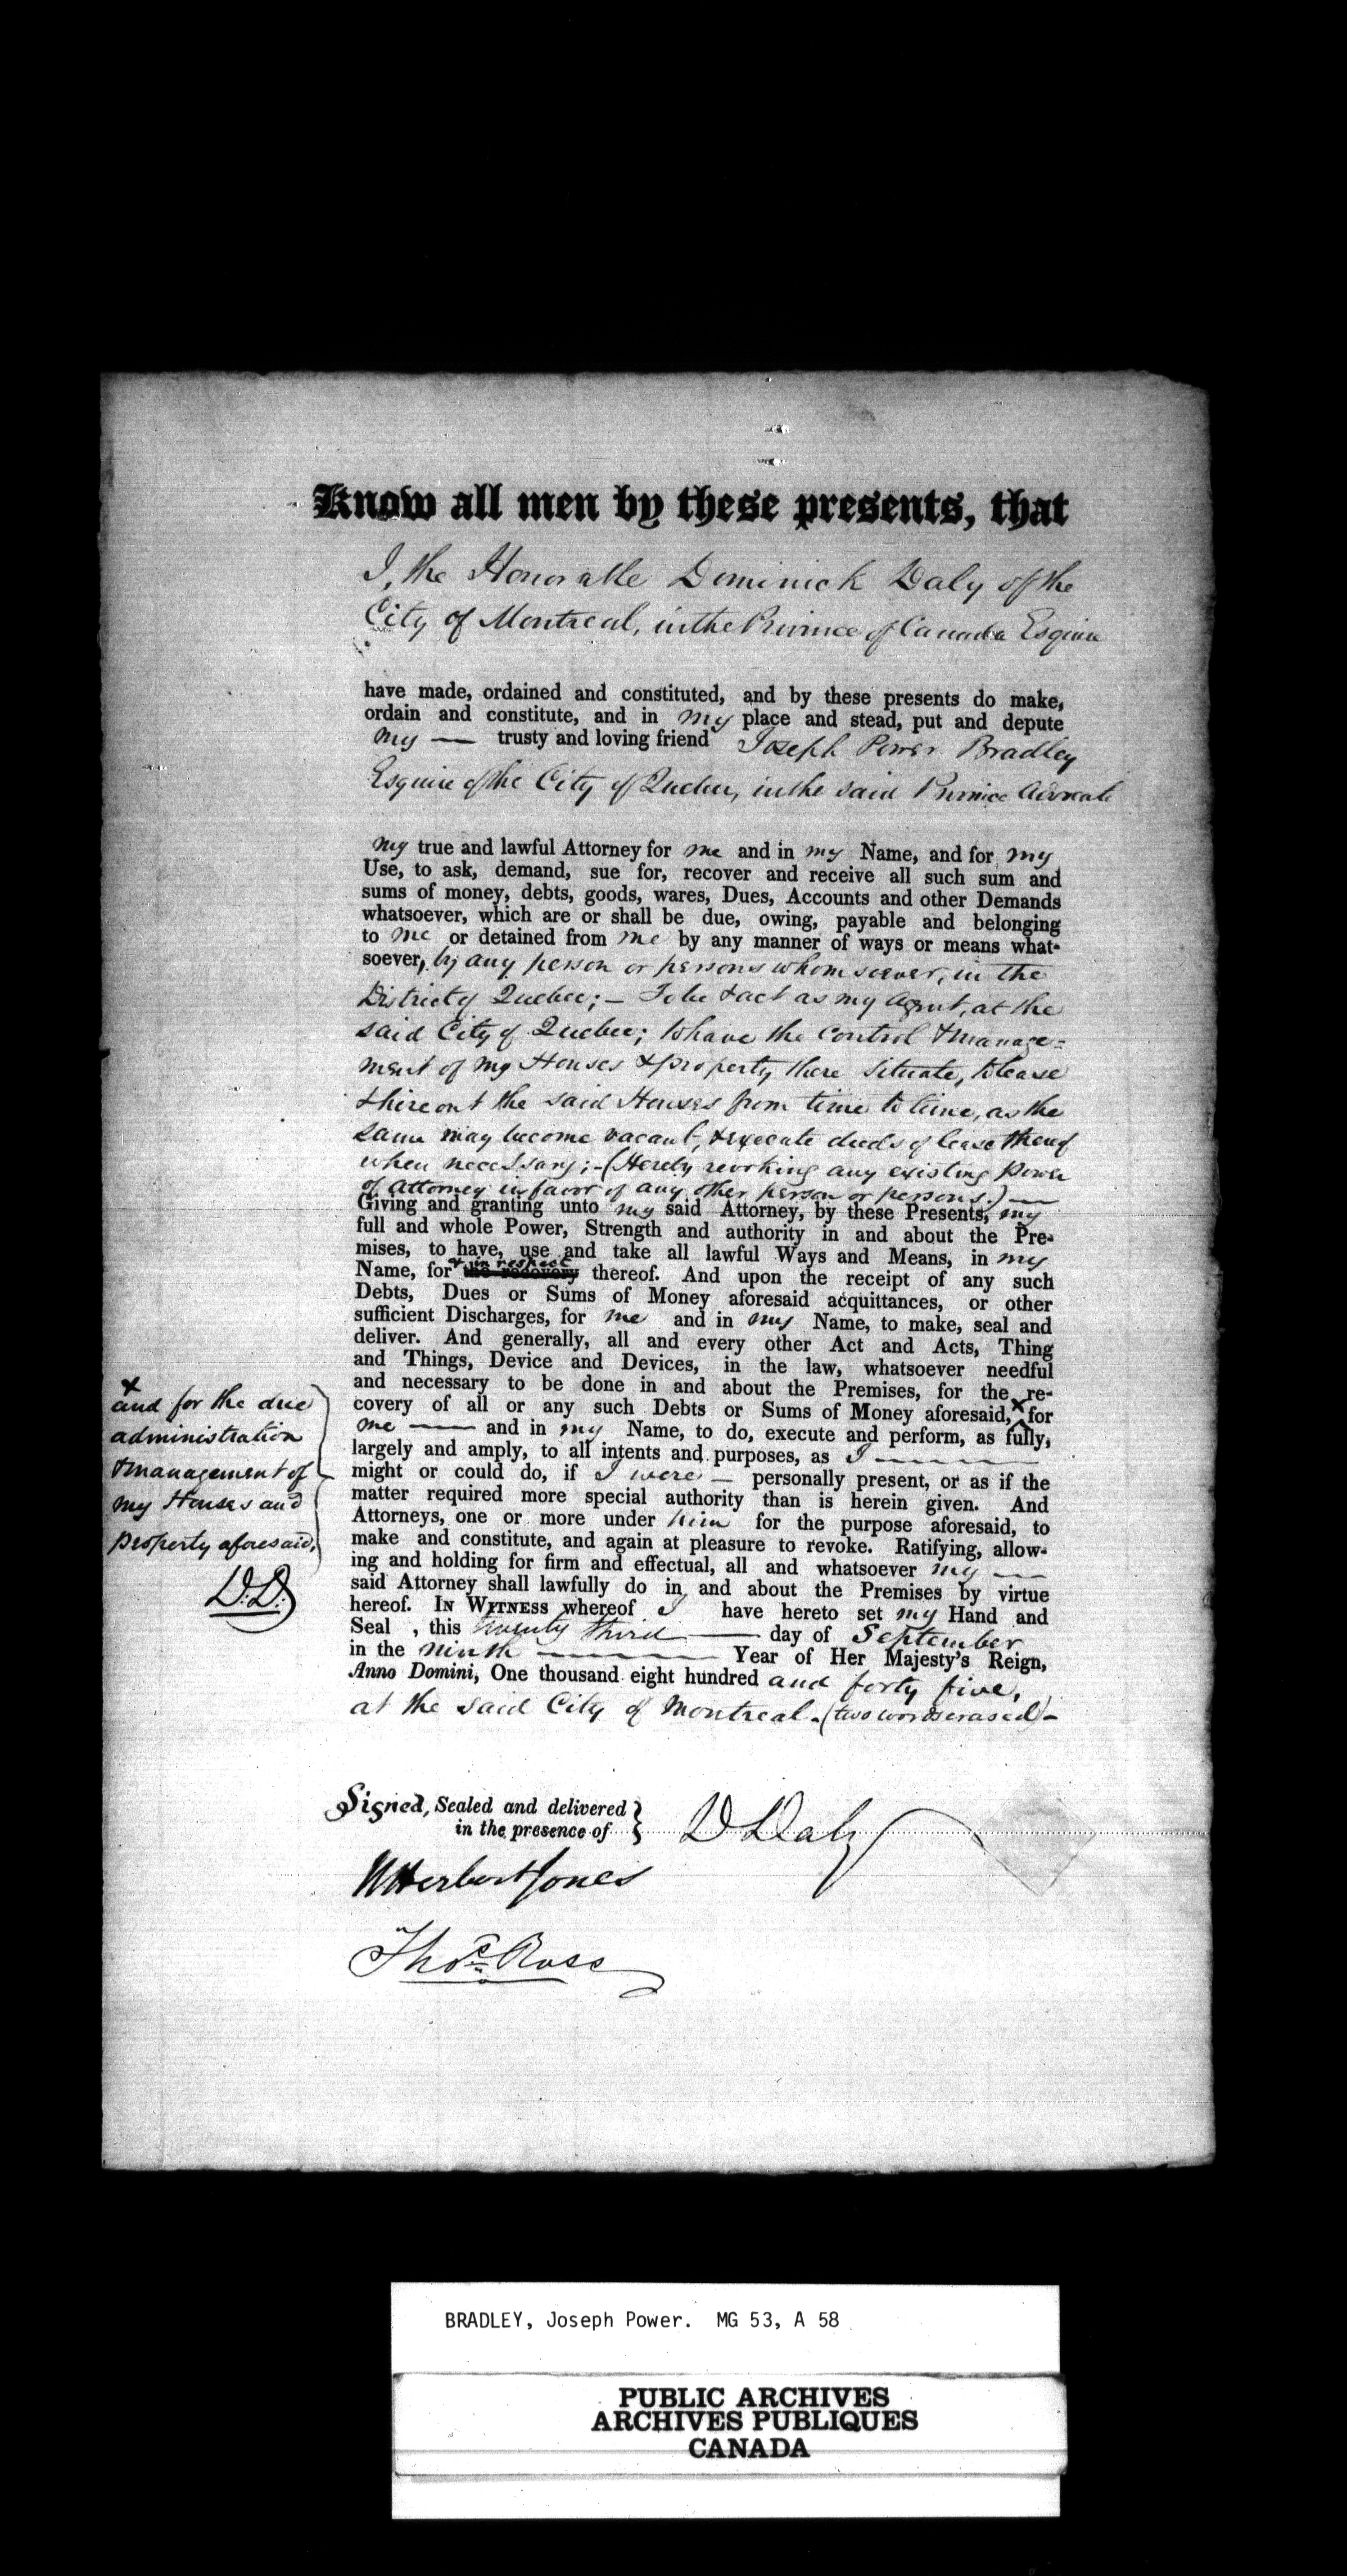 Know all men by these presents, that
I, the Honorable Dominick Daly of the
City of Montreal, in the Province of Canada Esquire
have made, ordained and constituted, and by these presents do make,
ordain and constitute, and in my place and stead, put and depute
my — trusty and loving friend Joseph Power Bradley
Esquire of the City of Quebec, in the said Province Advocate
my true and lawful Attorney for me and in my Name, and for my
Use, to ask, demand, sue for, recover and receive all such sum and
sums of money, debts, goods, wares, Dues, Accounts and other Demands
whatsoever, which are or shall be due, owing, payable and belonging
to me or detained from me by any manner of ways or means what-
soever, by any person or persons whomsoever, in the
District of Quebec; — To be & act as my Agent, at the
said City of Quebec; to have the control & manage=
ment of my Houses & property there situate, to lease
& hire out the said Houses from time to time, as the
same may become vacant, & execute deeds of lease thereof
when necessary; - (Hereby revoking any existing Power
of Attorney in favor of any other person or persons.) —
Giving and granting unto my said Attorney, by these Presents, my
full and whole Power, Strength and authority in and about the Pre-
mises, to have, use and take all lawful Ways and Means, in my
& in respect
Name, for the recovery thereof. And upon the receipt of any such
Debts, Dues or Sums of Money aforesaid acquittances, or other
sufficient Discharges, for me and in my Name, to make, seal and
deliver. And generally, all and every other Act and Acts, Thing
and Things, Device and Devices, in the law, whatsoever needful
and necessary to be done in and about the Premises, for the re-
covery of all or any such Debts or Sums of Money aforesaid, x for
me — and in my Name, to do, execute and perform, as fully,
largely and amply, to all intents and purposes, as I —
might or could do, if I were — personally present, or as if the
matter required more special authority than is herein given. And
Attorneys, one or more under him for the purpose aforesaid, to
make and constitute, and again at pleasure to revoke. Ratifying, allow-
ing and holding for firm and effectual, all and whatsoever my —
said Attorney shall lawfully do in and about the Premises by virtue
hereof. IN WITNESS whereof I have hereto set my Hand and
Seal , this twenty third — day of September
in the ninth — Year of Her Majesty's Reign,
Anno Domini, One thousand eight hundred and forty five,
at the said City of Montreal. (two words erased) -
x
and for the due
administration
& management of
my Houses and
property aforesaid,
D.D.
Signed, Sealed and delivered
in the presence of
D Daly
W Herbert Jones
Thos. Ross
BRADLEY, Joseph Power. MG 53, A 58
PUBLIC ARCHIVES
ARCHIVES PUBLIQUES
CANADA